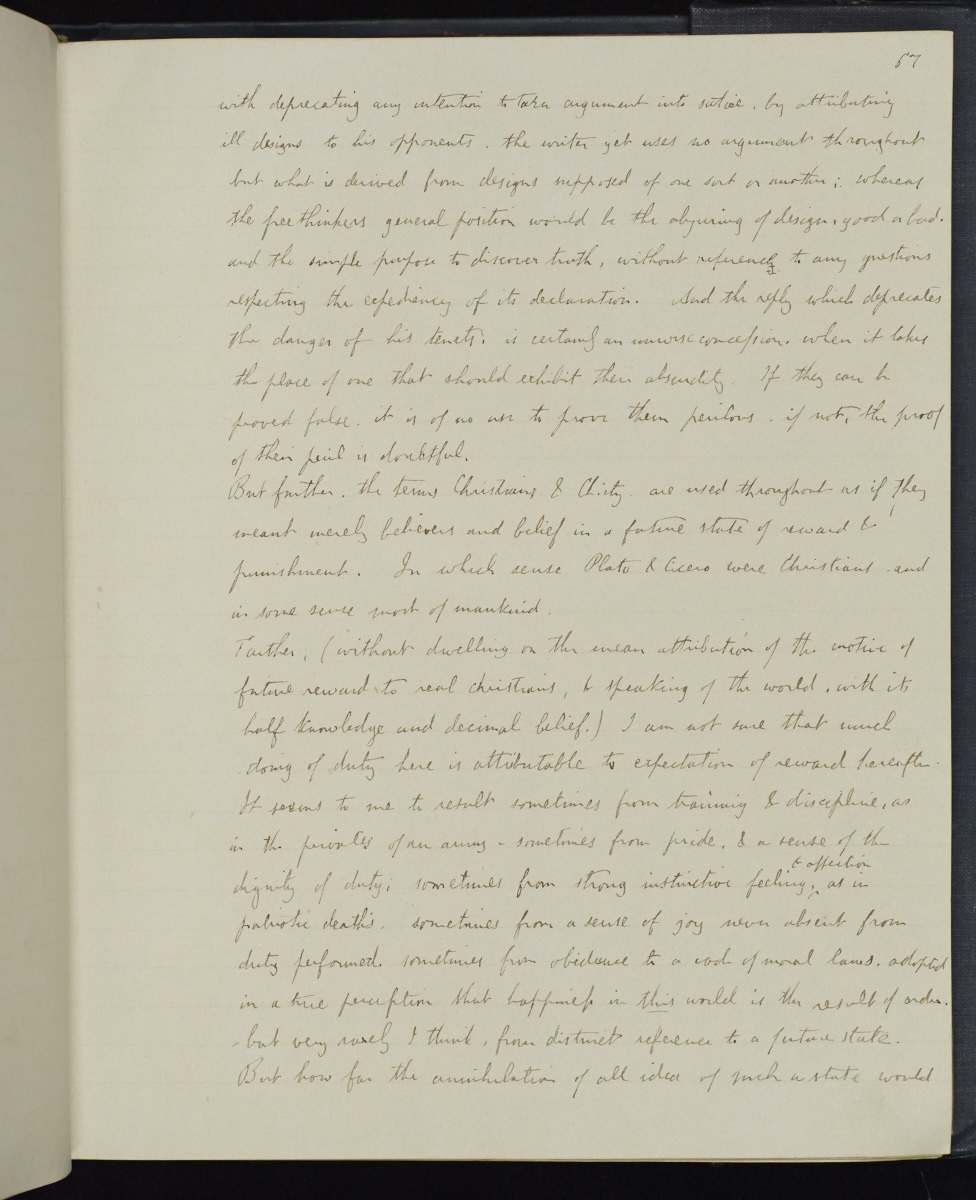 67
with deprecating any intention to turn argument into satire, by attributing
ill designs to his opponents. the writer yet uses no argument throughout
but what is derived from designs supposed of one sort or another; whereas
the freethinkers general position would be the abjuring of design, good or bad.
and the simple purpose to discover truth, without reference to any questions
respecting the expediency of its declaration. And the reply which deprecates
the danger of his tenets. is certainly an unwise concession. when it takes
the place of one that should exhibit their absurdity. If they can be
proved false. it is of no use to prove them perilous. if not, the proof
of their peril is doubtful.
But further. the terms Christians & Ch:ity. are used throughout as if they
meant merely believers and belief in a future state of reward &
punishment. In which sense Plato & Cicero were Christians. and
in some sense most of mankind.
Farther; (without dwelling on the mean attribution of the motive of
future reward to real christians, & speaking of the world, with its
half knowledge and decimal belief.) I am not sure that much
doing of duty here is attributable to expectation of reward hereafter.
It seems to me to result sometimes from training & discipline, as
in the privates of an army - sometimes from pride, & a sense of the
& affection
dignity of duty; sometimes from strong instinctive feeling, as in
patriotic deaths. sometimes from a sense of joy never absent from
duty performed. sometimes from obedience to a code of moral laws. adopted
in a true perception that happiness in this world is the result of order.
- but very rarely I think, from distinct reference to a future state.
But how far the annihilation of all idea of such a state would